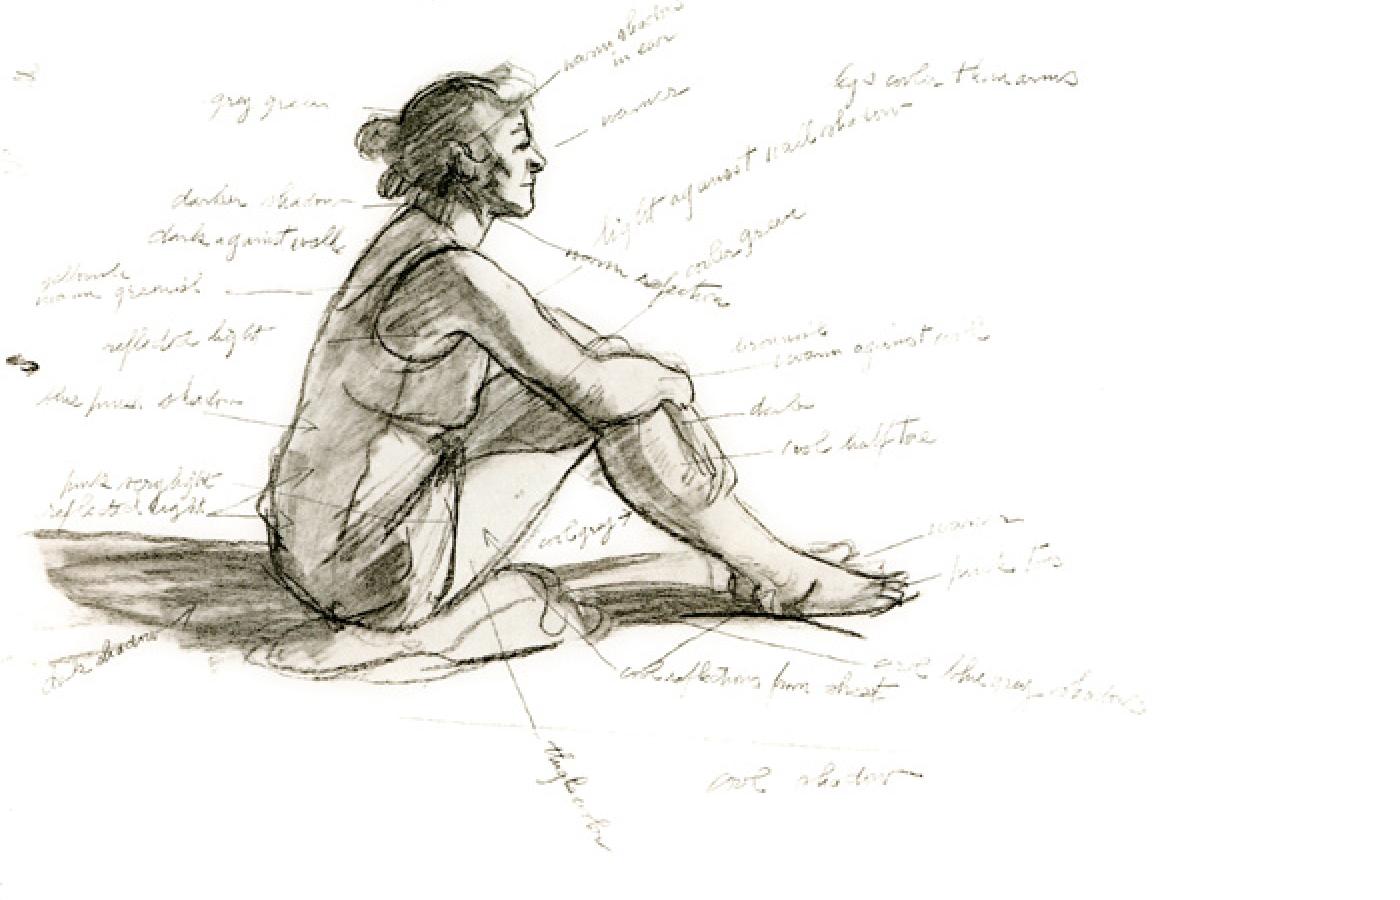 warm shadow
in ear
legs cooler than arms
grey green
warmer
light against wall shadow
darker shadow
dark against wall
cooler green
warm reflection
warm greenish
reflected light
brownish
warm against wall
blue purple shadow
dark
cool half tone
pink very light
reflected light
cool grey
warmer
pink toes
dark shadow
cool reflections from sheet
cool blue grey shadows
thigh cooler
cool shadow